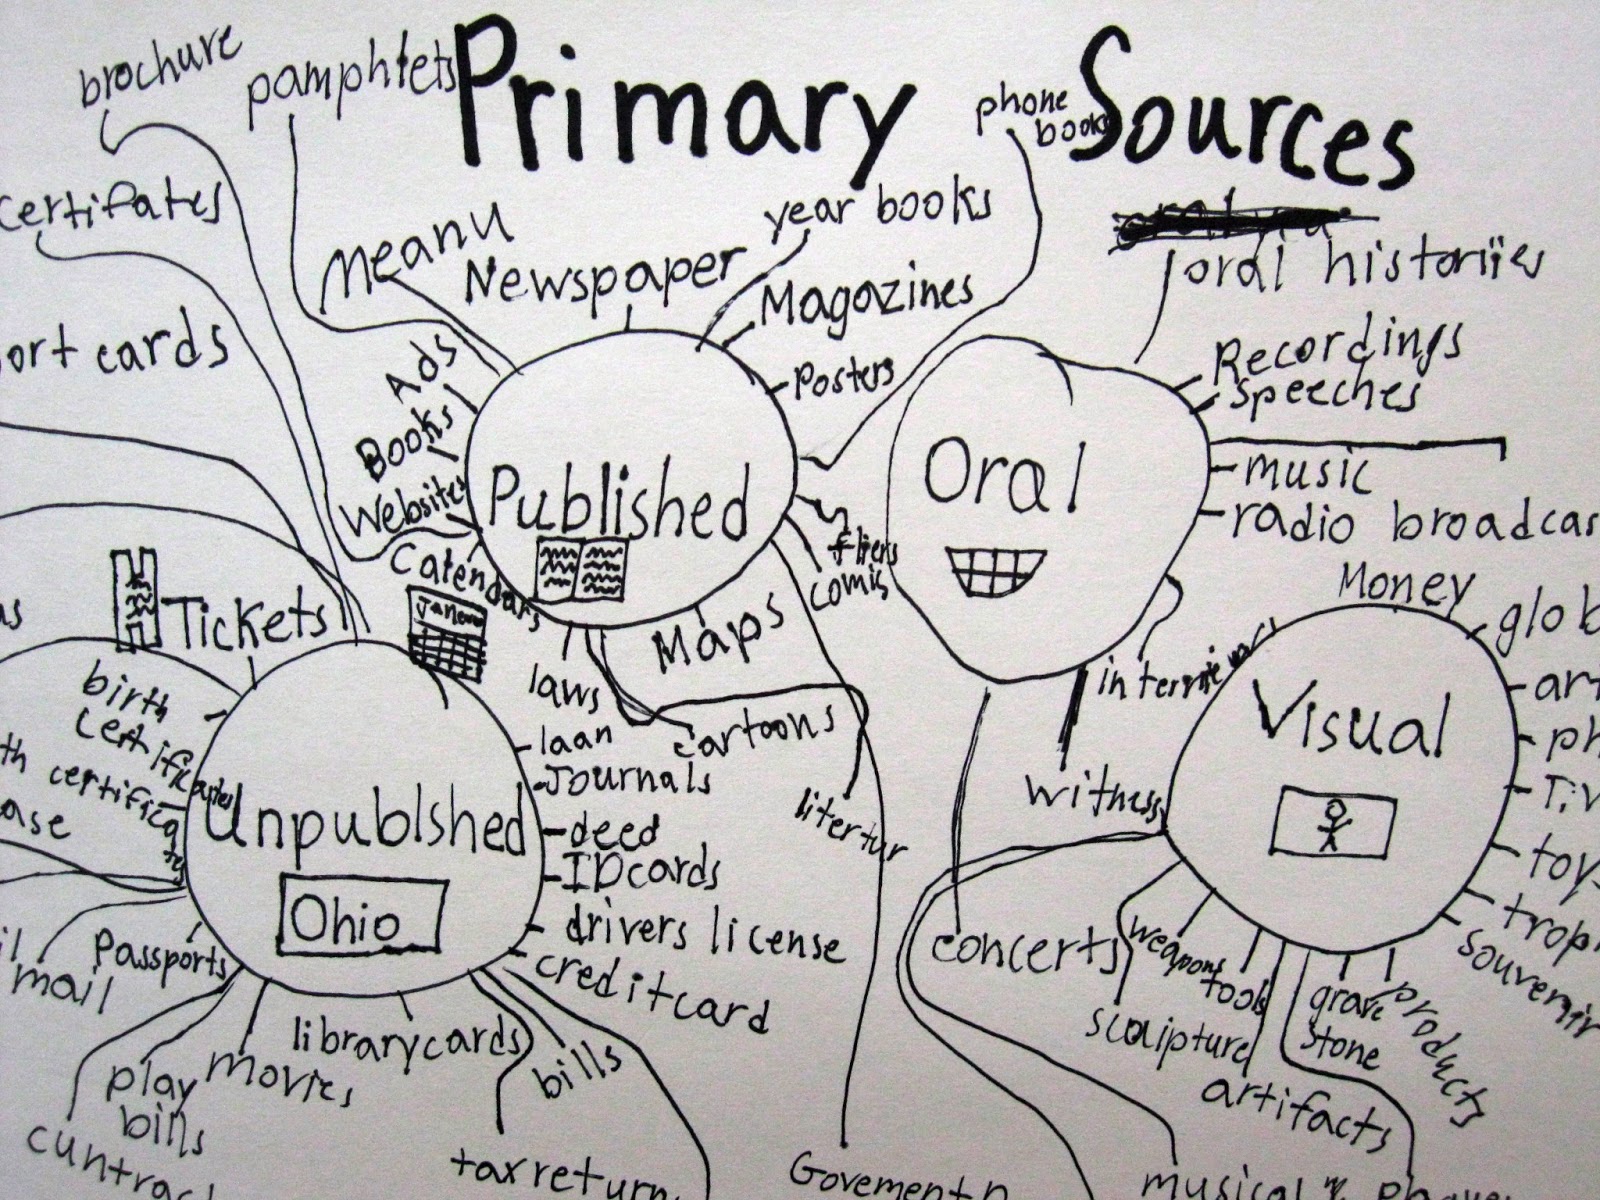 Primary Sources
brochure
pamphlets
phone
books
certifates
ort cards
Meanu
Newspaper
year books
Magazines
Posters
Ads
Books
Websites
Calendars
Published
fliers
comic
Maps
laws
cartoons
litertur
Oral
oral historiies
Recordings
speeches
music
radio broadcas
witness
concerts
Tickets
birth
certificates
th certificate
ase
Unpublshed
Ohio
laan
Journals
deed
IDcards
drivers license
creditcard
bills
librarycards
movies
play
bills
cuntract
Passports
il
mail
taxreturn
Govement
Visual
Money
glob
art
ph
toy
trop
souvenir
products
grave
stone
artifacts
tools
weapons
sculpture
musical